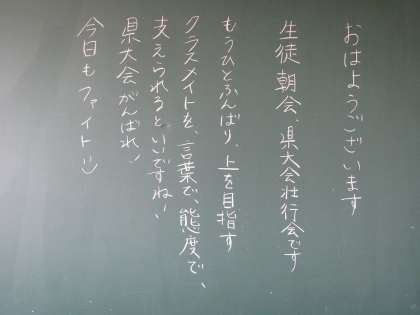 おはようございます
生徒朝会、県大会壮行会です
もうひとふんばり、上を目指す
クラスメイトを、言葉で、態度で、
支えられるといいですね！
県大会がんばれ！
今日もファイト!!